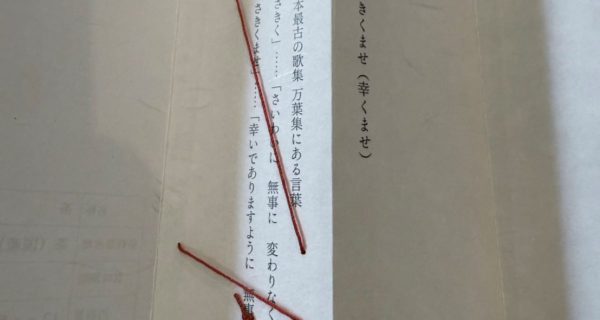 きくませ(幸くませ)
本最古の歌集 万葉集にある言葉
さきく」……「さいわいに 無事に 変わりなく
さきくませ」……「幸いでありますように 無事